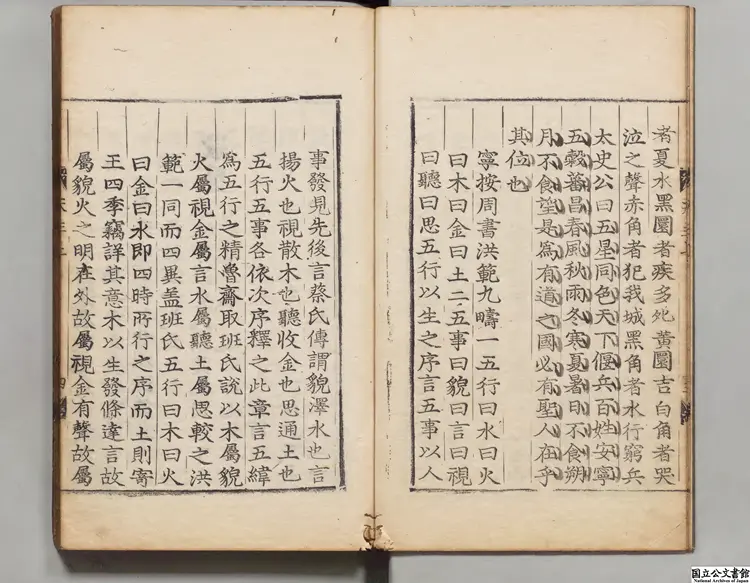 者夏水黑圜者疾多死黄圜吉白角者哭
泣之聲赤角者犯我城黑角者水行窮兵
太史公曰五星同色天下偃兵百姓安寧
五穀蕃昌春風秋雨冬寒夏暑日不食朔
月不食望是爲有道之國必有聖人在乎
其位也
寧按周書洪範九疇一五行曰水曰火
曰木曰金曰土二五事曰貌曰言曰視
曰聽曰思五行以生之序言五事以人
事發見先後言蔡氏傳謂貌澤水也言
揚火也視散木也聽收金也思通土也
五行五事各依次序釋之此章言五緯
爲五行之精魯齋取班氏說以木屬貌
火屬視金屬言水屬聽土屬思較之洪
範一同而四異盖班氏五行曰木曰火
曰金曰水即四時所行之序而土則寄
王四季竊詳其意木以生發條達言故
屬貌火之明在外故屬視金有聲故屬
國立公文書館
National Archives of Japan